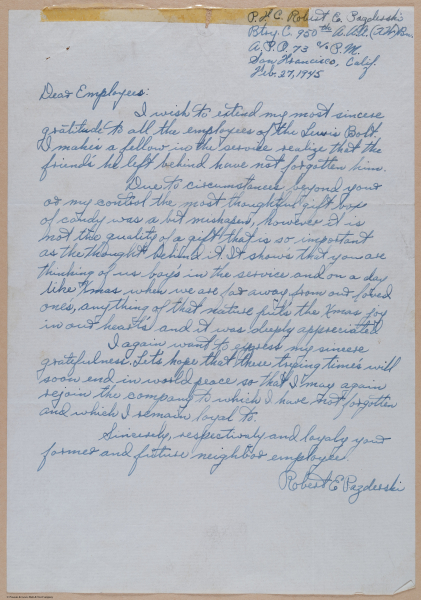 P.F.C. Robert E. Pazderski
Btry. C. 950th A.A.A. (A.W.) Bn.
A.P.O. 73 c/o P.M.
San Francisco, Calif.
Feb. 27, 1945
Dear Employees:
I wish to extend my most sincere
gratitude to all the employees of the Lewis Bolt.
It makes a fellow in the service realize that the
friend's he left behind have not forgotten him.
Due to circumstances beyond your
or my control the most thoughtful gift box
of candy was a bit mishapen, however it is
not the quality of a gift that is so important
as the thought behind it. It shows that you are
thinking of us boys in the service and on a day
like Xmas when we are far away from our loved
ones', anything of that nature put's the Xmas joy
in our heart's and it was deeply appreciated.
I again want to express my sincere
gratefulness. Let's hope that these trying time's will
soon end in world peace so that I may again
rejoin the company to which I have not forgotten
and which I remain loyal to.
Sincerely, respectively and loyally your
former and future neighbor employee
Robert E Pazderski